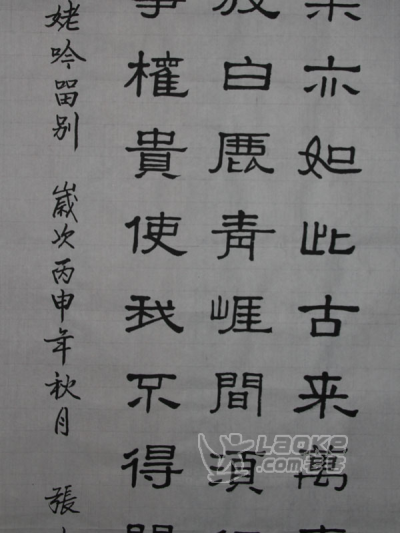 樂亦如此古来萬事
放白鹿青崕間須行
事權貴使我不得開
姥吟留别 歲次丙申年秋月 張
LAOKE
.COM